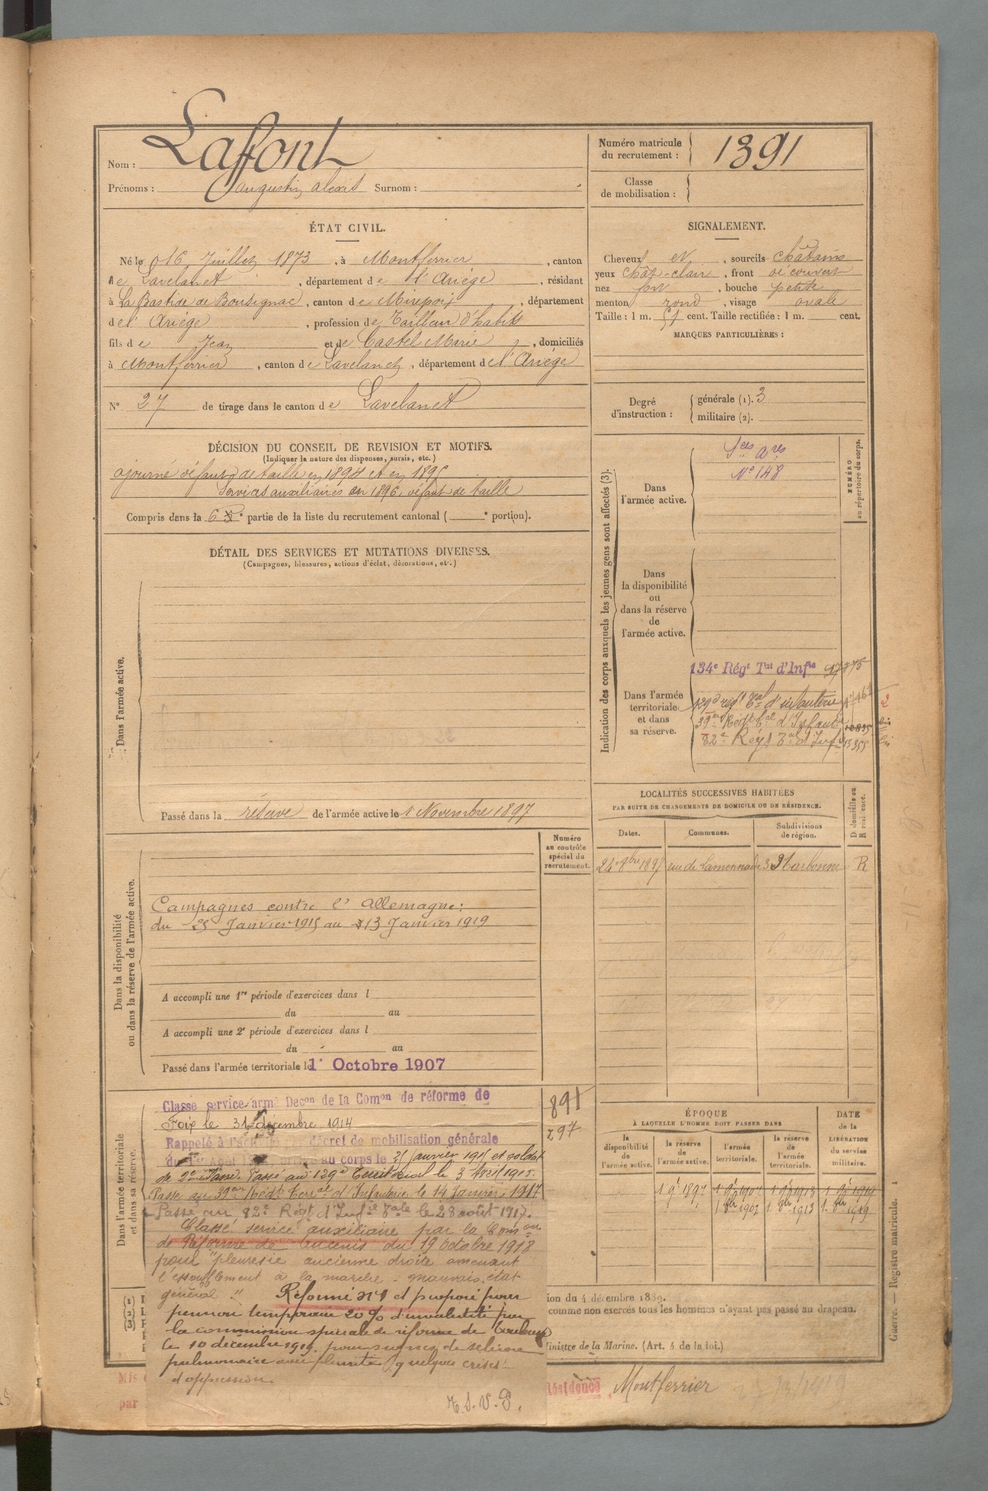 Nom : Laffont
Prénoms : Augustin alexis Surnom :
Numéro matricule du recrutement : 1391
Classe de mobilisation :
ÉTAT CIVIL.
Né le 16 Juillet 1873, à Montferrier, canton
de Lavelanet, département de l'Ariège, résidant
à La Bastide de Bousignac, canton de Mirepoix, département
de l'Ariège, profession de Tailleur d'habits
fils de Jean et de Castel Marie, domiciliés
à Montferrier, canton de Lavelanet, département de l'Ariège
N° 27 de tirage dans le canton de Lavelanet
SIGNALEMENT.
Cheveux et, sourcils châtains
yeux chât-claire, front découvert
nez fort, bouche petite
menton rond, visage ovale
Taille : 1 m. 51 cent. Taille rectifiée : 1 m. cent.
MARQUES PARTICULIÈRES :
Degré d'instruction : générale (1). 3
militaire (2).
DÉCISION DU CONSEIL DE REVISION ET MOTIFS.
(Indiquer la nature des dispenses, sursis, etc.)
ajourné défaut de taille en 1894 et en 1895
Services auxiliaires en 1896, défaut de taille
Compris dans la 6e partie de la liste du recrutement cantonal ( e portion).
DÉTAIL DES SERVICES ET MUTATIONS DIVERSES.
(Campagnes, blessures, actions d'éclat, décorations, etc.)
Dans l'armée active.
Passé dans la réserve de l'armée active le 1 Novembre 1897
Indication des corps auxquels les jeunes gens sont affectés (3).
NUMÉRO au répertoire du corps.
Dans l'armée active.
Sces ares
N° 148
Dans la disponibilité ou dans la réserve de l'armée active.
Dans l'armée territoriale et dans sa réserve.
134e Régt Tal d'Infie
139e régt Tal d'infanterie
39e Régt Tal d'Infanterie
82e Régt Tal d'Infie
LOCALITÉS SUCCESSIVES HABITÉES
PAR SUITE DE CHANGEMENTS DE DOMICILE OU DE RÉSIDENCE.
Dates. Communes. Subdivisions de région. D domicile ou R résidence.
24 9bre 1897 rue de Lamennais 3 Narbonne R
Dans la disponibilité ou dans la réserve de l'armée active.
Numéro au contrôle spécial du recrutement.
Campagnes contre l'Allemagne :
du 25 Janvier 1915 au 13 Janvier 1919
A accompli une 1re période d'exercices dans l
du au
A accompli une 2e période d'exercices dans l
du au
Passé dans l'armée territoriale le 1er Octobre 1907
Dans l'armée territoriale et dans sa réserve.
891
297
Classé service armé Décon de la Comon de réforme de
Foix le 31 décembre 1914
Rappelé à l'activité décret de mobilisation générale
au corps le 25 janvier 1915 et soldat
de 2e classe. Passé au 139e Territorial le 3 Avril 1915.
Passé au 39e Régt Terral d'Infanterie le 14 Janvier 1917
Passé au 82e Régt d'Infie Tale le 28 août 1917.
Classé service auxiliaire par la Comon
de Réforme de Ancenis du 19 octobre 1918
pour "pleurésie ancienne droite amenant
l'essoufflement à la marche - mauvais état
général". Réformé n°1 et proposé pour
pension temporaire 20% d'invalidité par
la commission spéciale de réforme de Toulouse
le 10 décembre 1919, pour signes de sclérose
pulmonaire avec pleurite, quelques crises
d'oppression.
T.S.V.P.
ÉPOQUE
À LAQUELLE L'HOMME DOIT PASSER DANS
la disponibilité de l'armée active. la réserve de l'armée active. l'armée territoriale. la réserve de l'armée territoriale.
DATE de la LIBÉRATION du service militaire.
1 9bre 1897
ion du 4 décembre 1889.
comme non exercés tous les hommes n'ayant pas passé au drapeau.
Ministre de la Marine. (Art. 4 de la loi.)
Guerre. — Registre matricule. 1
Résidence Montferrier